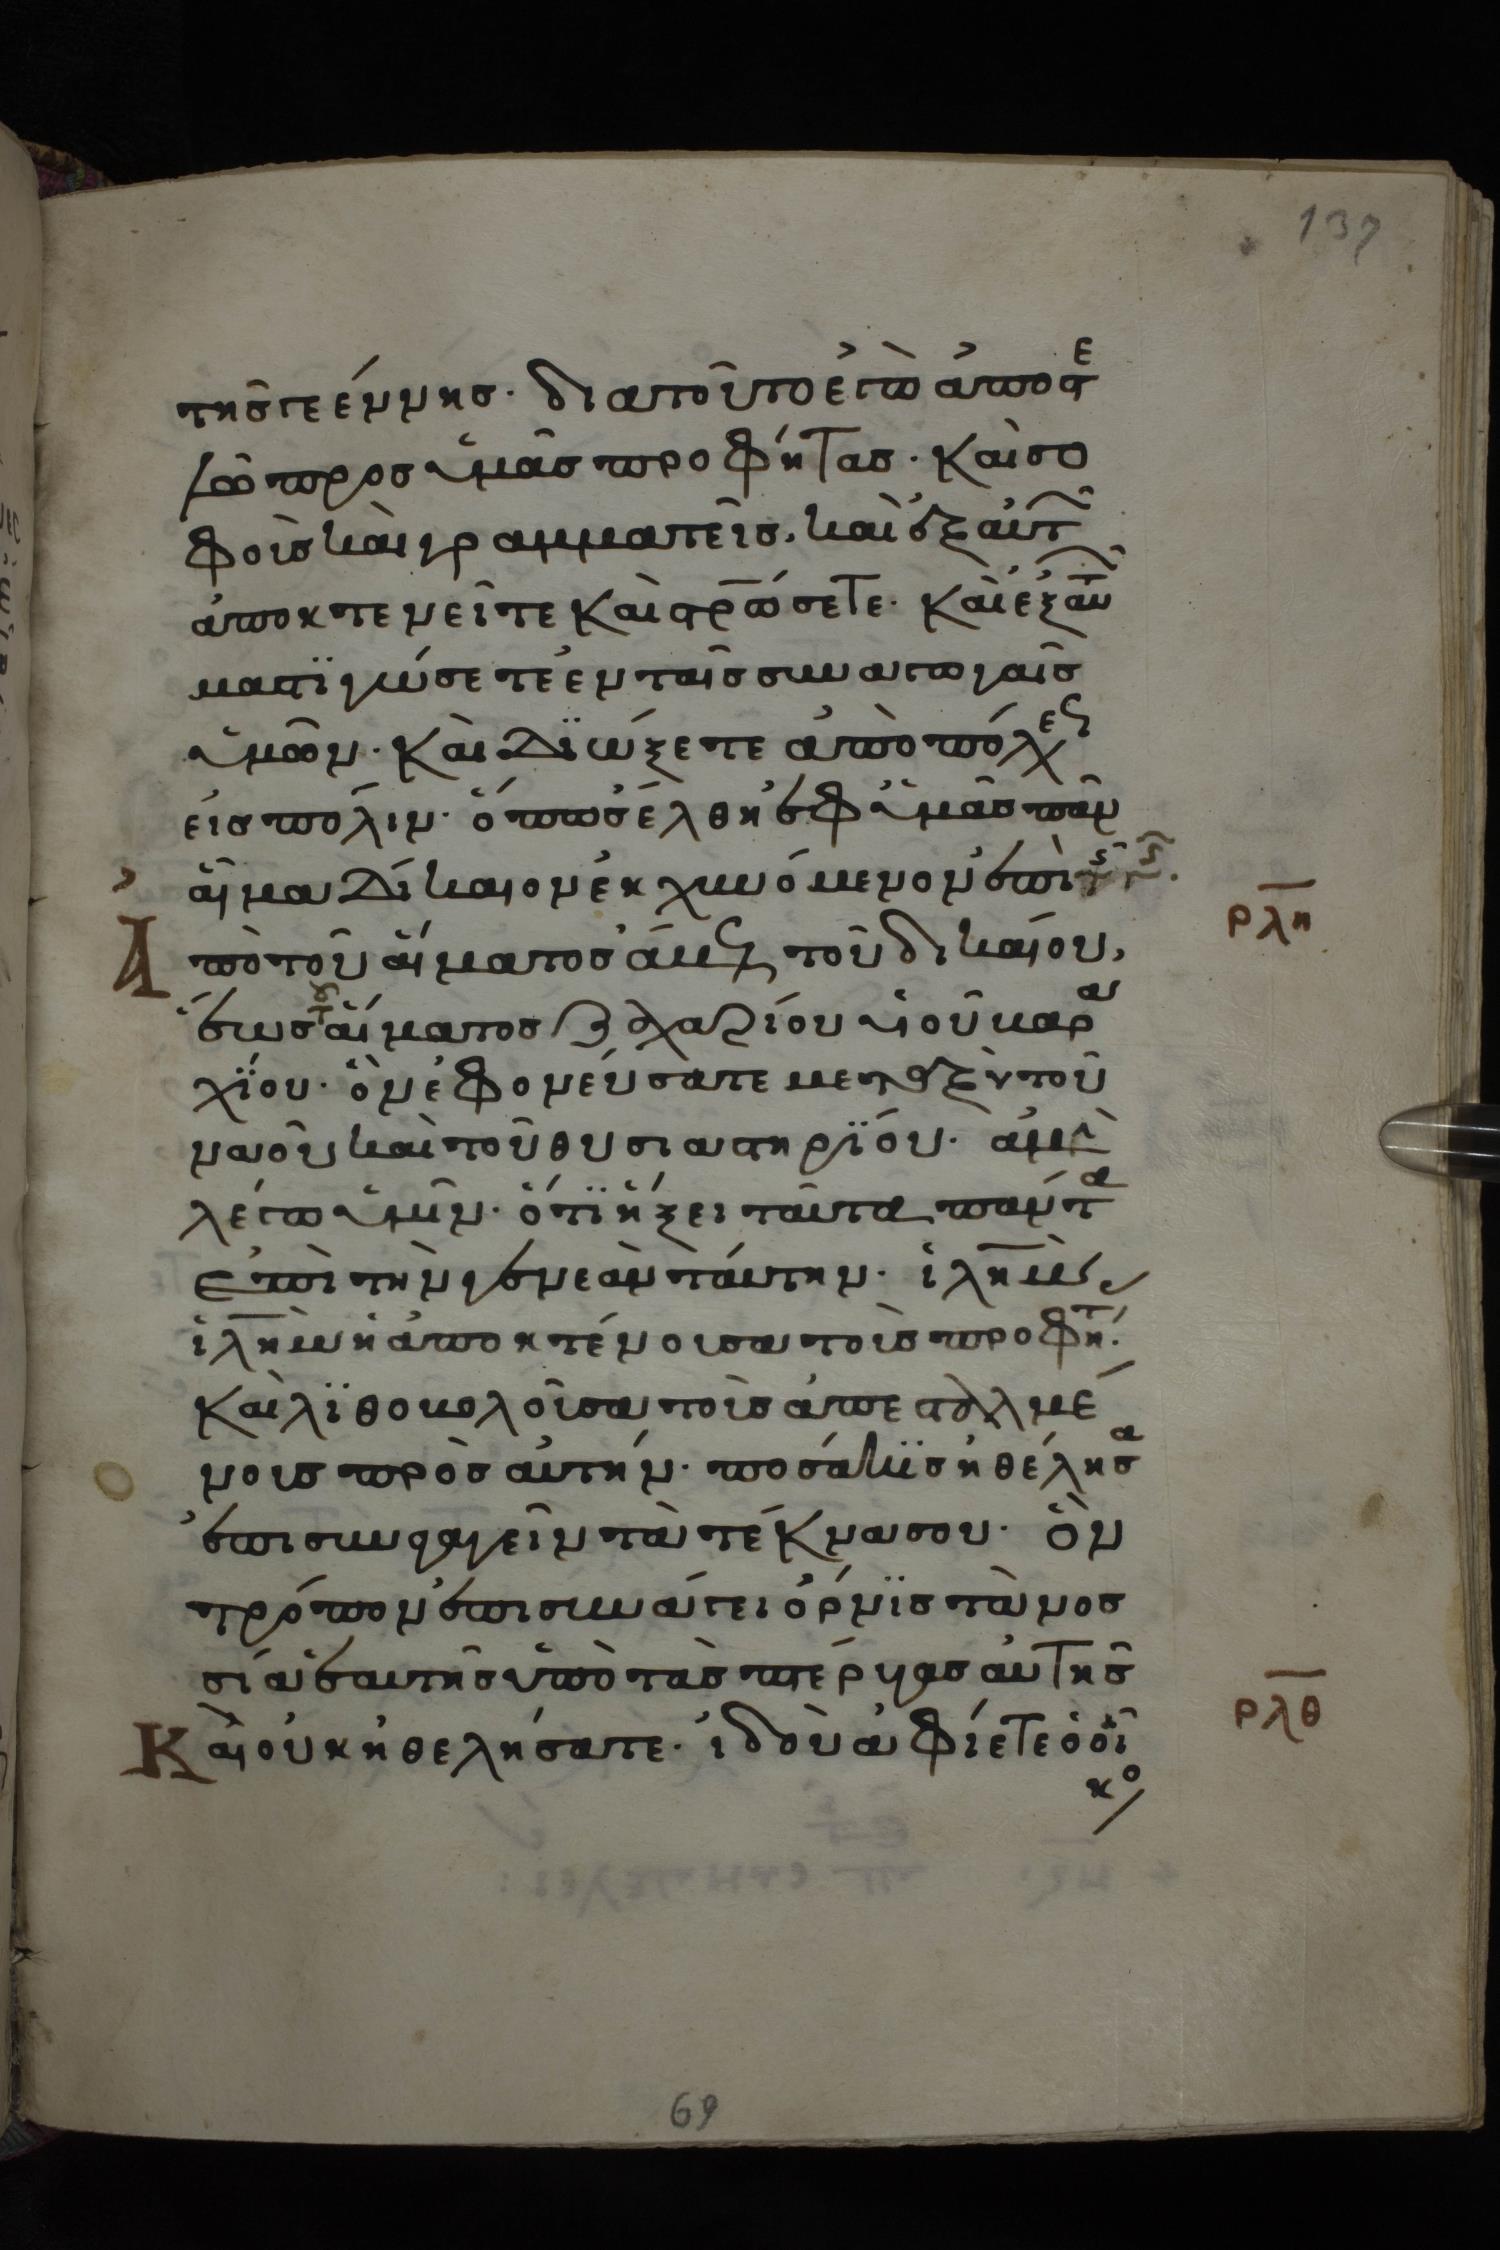 137
της γεέννης· διατοῦτο ἐγὼ ἀποστε
λῶ προς ὑμᾶς προφήτας· καὶ σο
φοὺς καὶ γραμματεῖς, καὶ ἐξ αὐτῶ
ἀποκτενεῖτε καὶ στρώσετε· καὶ ἐξ αὐτῶ
μαστιγώσετε ἐν ταῖς συναγωγαῖς
ὑμῶν· καὶ διώξετε ἀπὸ πόλεως
εἰς πόλιν· ὅπως ἔλθη ἐφ ὑμᾶς πᾶν
αἷμα δίκαιον ἐκχυνόμενον ἐπὶ τῆς γῆς.
ρλη
Ἀπὸ τοῦ αἵματος ἄβελ τοῦ δικαίου,
ἕως τοῦ αἵματος ζαχαρίου υἱοῦ βαρα
χίου· ὃν ἐφονεύσατε μεταξὺ τοῦ
ναοῦ καὶ τοῦ θυσιαστηρίου· ἀμὴν
λέγω ὑμῖν· ὅτι ἥξει ταῦτα πάντα
ἐπὶ τὴν γενεὰν ταύτην· ἰλημ
ἰλημ ἡ ἀποκτένουσα τοὺς προφήτ
καὶ λιθοβολοῦσα τοὺς ἀπεσταλμέ
νους πρὸς αὐτήν· ποσάκις ἠθέλησα
ἐπισυναγαγεῖν τὰ τέκνα σου· ὃν
τρόπον ἐπισυνάγει ὄρνις τὰ νοσ
σία ἑαυτῆς ὑπὸ τὰς πτέρυγας αὐτῆς
ρλθ
Καὶ οὐκ ἠθελήσατε· ἰδοὺ ἀφίετε ὁ οἶ
κο
69